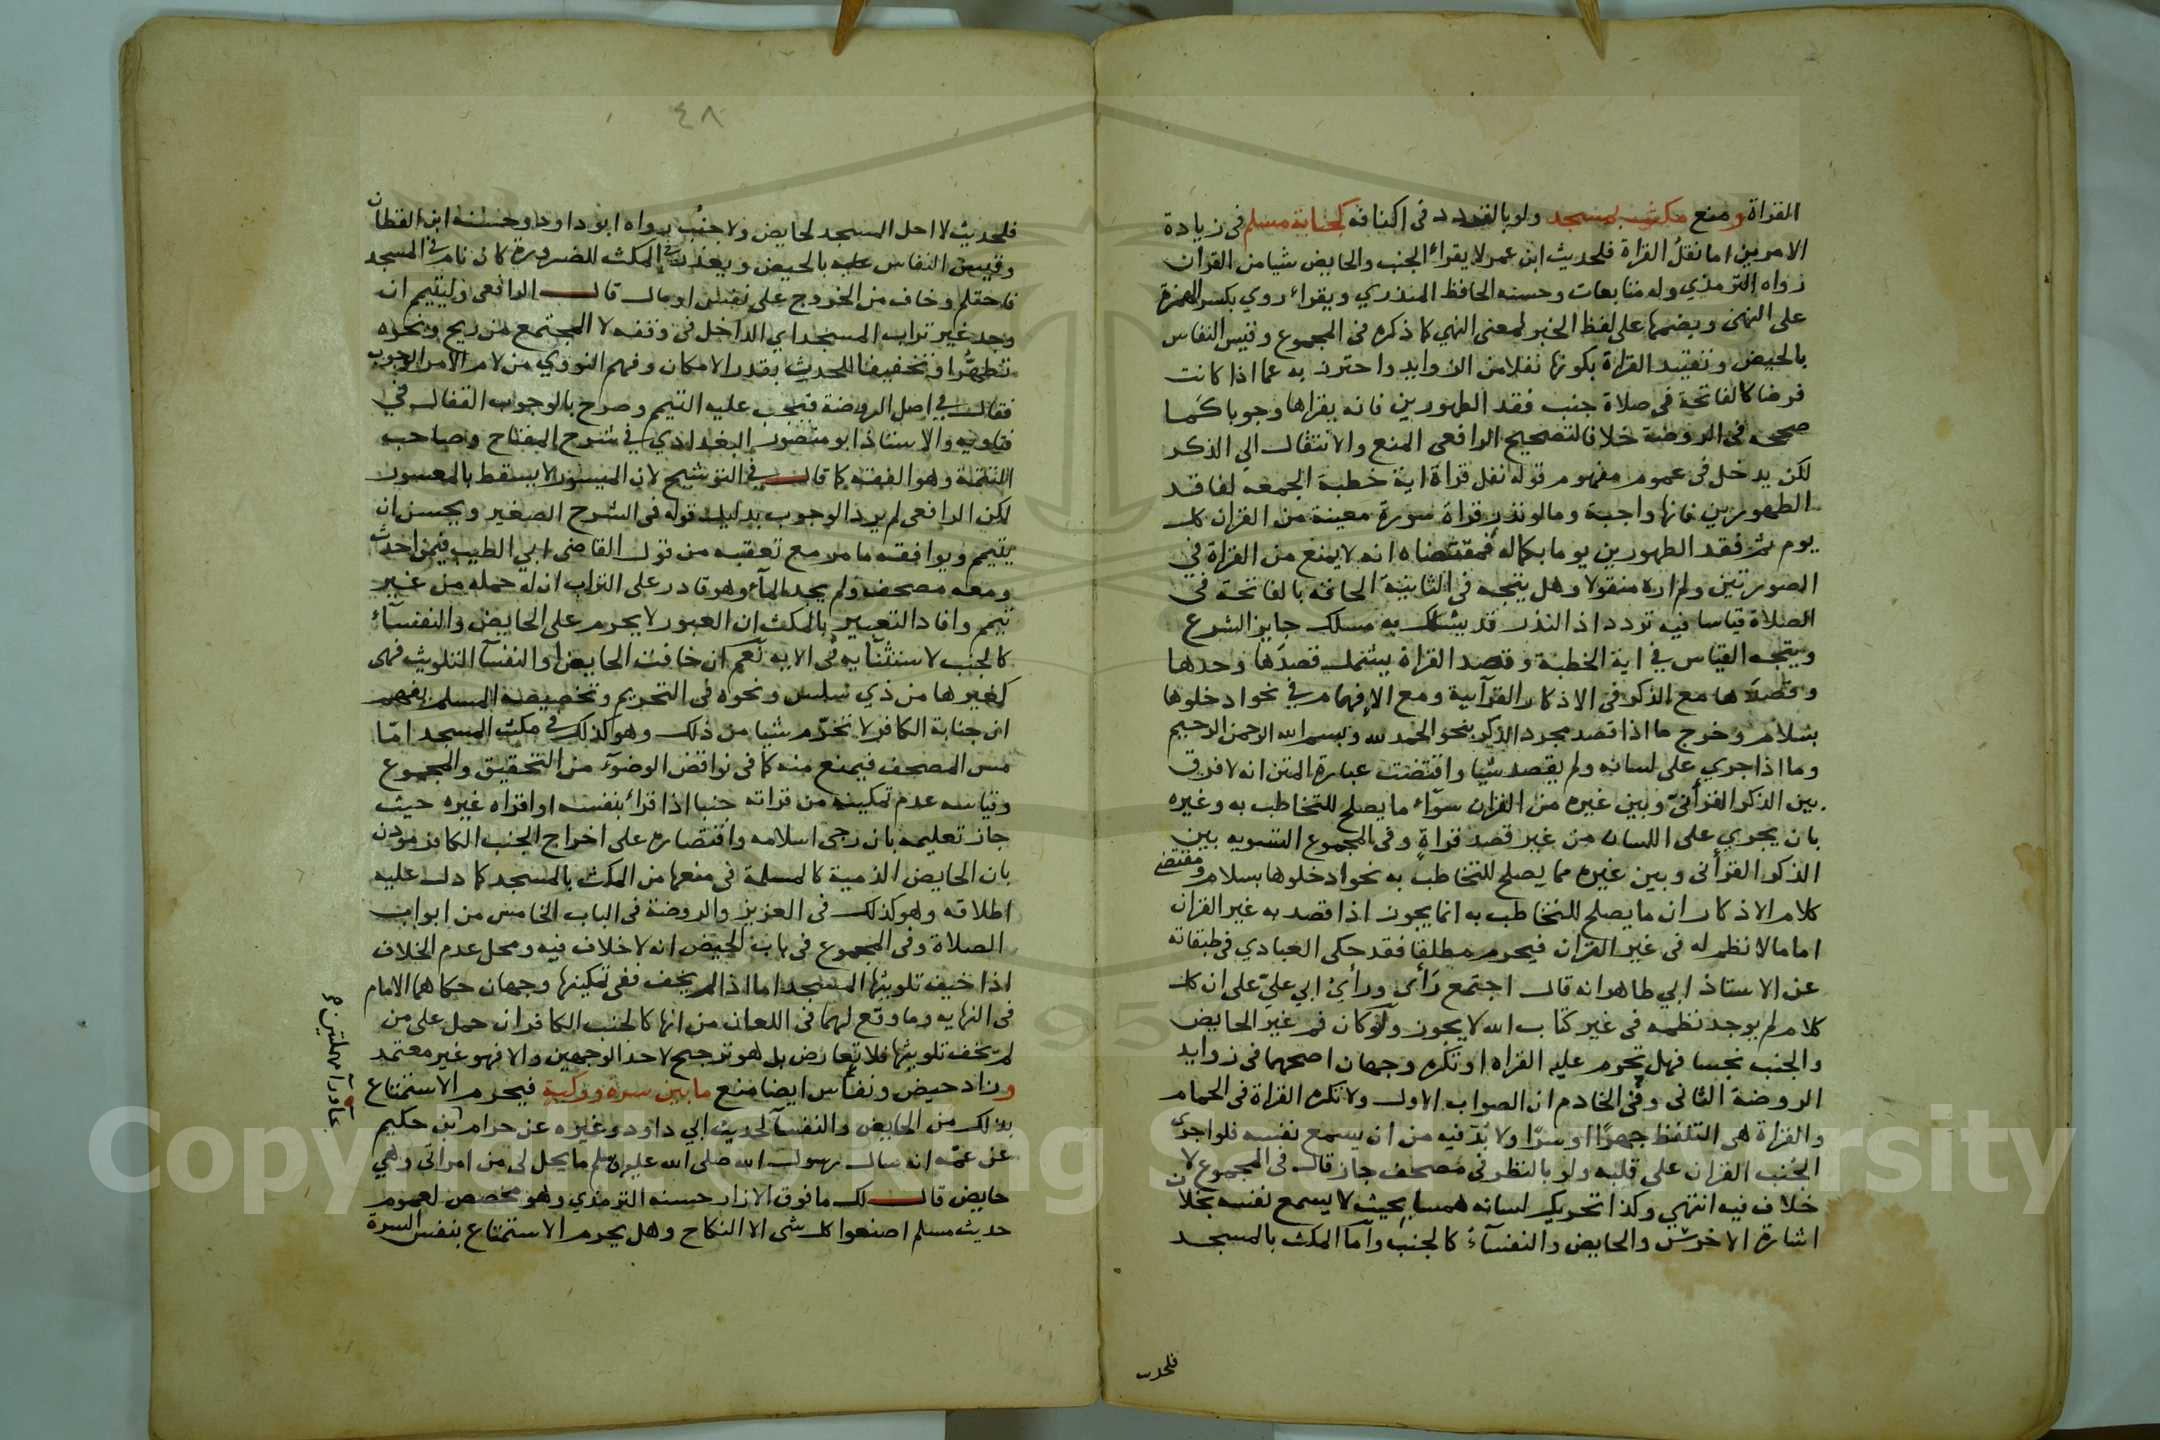 القراة ومنع مكث بمسجد ولو بالتردد في اكنافه كجنابة مسلم في زيادة
الامرين اما نقل القراة فلحديث ابن عمر لا يقراء الجنب والحايض شيا من القران
رواه الترمذي وله متابعات وحسنه الحافظ المنذري ويقراء روي بكسر الهمزة
على النهى وبضمها على لفظ الخبر لمعنى النهي كما ذكره في المجموع وقيس النفاس
بالحيض وتقييد القراة بكونها نفلا من الزوايد واحترز به عما اذا كانت
فرضا كالفاتحة في صلاة جنب فقد الطهورين فانه يقراها وجوبا كما
صححه في الروضة خلافا لتصحيح الرافعي المنع والانتقال الي الذكر
لكن يدخل في عموم مفهوم قوله نفل قراة اية خطبة الجمعه لفاقد
الطهورين فانها واجبة وما لو نذر قراة سورة معينة من القران كل
يوم ثم فقد الطهورين يوما بكماله فمقتضاه انه لا يمنع من القراة في
الصورتين ولم اره منقولا وهل يتجه في الثانية الحاقه بالفاتحة في
الصلاة قياسا فيه تردد اذ النذر قد يسلك به مسلك جايز الشرع
ويتجه القياس في اية الخطبة وقصد القراة يشمل قصدها وحدها
وقصدها مع الذكر في الاذكار القرآنية ومع الافهام في نحو ادخلوها
بسلام وخرج ما اذا قصد مجرد الذكر بنحو الحمد لله وبسم الله الرحمن الرحيم
وما اذا جري على لسانه ولم يقصد شيا واقتضت عبارة المتن انه لا فرق
بين الذكر القرأنى وبين غيره من القران سوآء ما يصلح للتخاطب به وغيره
بان يجري على اللسان من غير قصد قراة وفي المجموع التسويه بين
الذكر القرأنى وبين غيره مما يصلح للتخاطب به نحو ادخلوها بسلام ومقتضى
كلام الاذكار ان ما يصلح للتخاطب به انما يجوز اذا قصد به غير القران
اما ما لا نظم له في غير القران فيحرم مطلقا فقد حكى العبادي في طبقاته
عن الاستاذ ابي طاهر انه قال اجتمع رأى ورأي ابي علي على ان كل
كلام لم يوجد نظمه في غير كتاب الله لا يجوز ولو كان فم غير الحايض
والجنب نجسا فهل تحرم عليه القراه او تكره وجهان اصحهما في زوايد
الروضة الثانى وفي الخادم ان الصواب الاول ولا تكره القراة في الحمام
والقراة هي التلفظ جهرا او سرا ولا بد فيه من ان يسمع نفسه فلو اجرى
الجنب القران على قلبه ولو بالنظر في مصحف جاز قال في المجموع لا
خلاف فيه انتهي وكذا تحريك لسانه همسا بحيث لا يسمع نفسه بخلاف
اشارة الاخرس والحايض والنفسآء كالجنب وآما المكث بالمسجد
فلحديث
٤٨
فلحديث لا احل المسجد لحايض ولا جنب رواه ابو داود وحسنه ابن القطان
وقيس النفاس عليه بالحيض ويعذر في المكث للضرورة كان نام في المسجد
فاحتلم وخاف من الخروج على نفس او مال قال الرافعي وليتيم ان
وجد غير تراب المسجد اي الداخل في وقفه لا المجتمع من ريح ونحوه
تطهرا وتخفيفا للحدث بقدر الامكان وفهم النووي من لام الامر الوجوب
فقال في اصل الروضة فيجب عليه التيمم وصرح بالوجوب القفال في
فتاويه والاستاذ ابو منصور البغدادي في شرح المفتاح وصاحب
التتمة وهو الفقه كما قال في التوشيح لان الميسور لا يسقط بالمعسور
لكن الرافعي لم يرد الوجوب بدليل قوله في الشرح الصغير ويحسن ان
يتيمم ويوافقه ما مر مع تعقبه من قول القاضي ابي الطيب فيمن احدث
ومعه مصحف ولم يجد المآء وهو قادر على التراب ان له حمله من غير
تيمم وافاد التعبير بالمكث ان العبور لا يحرم على الحايض والنفسآء
كالجنب لاستثنآيه في الايه نعم ان خافت الحايض او النفسآ التلويث فهى
كغيرها من ذي سلس ونحوه في التحريم وتخصيصه المسلم يفهم
ان جنابة الكافر لا تحرم شيا من ذلك وهو كذلك في مكث المسجد امّا
مس المصحف فيمنع منه كما في نواقض الوضوء من التحقيق والمجموع
وقياسه عدم تمكينه من قراته جنبا اذا قرا بنفسه او اقراه غيره حيث
جاز تعليمه بان رجي اسلامه واقتصاره على اخراج الجنب الكافر موذن
بان الحايض الذمية كالمسلمة في منعها من المكث بالمسجد كما دل عليه
اطلاقه وهو كذلك في العزيز والروضة في الباب الخامس من ابواب
الصلاة وفي المجموع في باب الحيض انه لا خلاف فيه ومحل عدم الخلاف
اذا خيف تلويثها المسجد اما اذا لم يخف ففى تمكينها وجهان حكاهما الامام
في النهايه وما وقع لهما في اللعان من انها كالجنب الكافر ان حمل على من
لم يخف تلويثها فلا تعارض بل هو ترجيح لاحد الوجهين والا فهو غير معتمد
وزاد حيض ونفاس ايضا منع ما بين سرة وركبة فيحرم الاستمتاع
بذلك من الحايض والنفسآ لحديث ابي داود وغيره عن حرام بن حكيم
عن عمه انه سال رسول الله صلى الله عليه وسلم ما يحل لى من امراتي وهي
حايض قال لك ما فوق الازار حسنه الترمذي وهو مخصص لعموم
حديث مسلم اصنعوا كل شى الا النكاح وهل يحرم الاستمتاع بنفس السرة